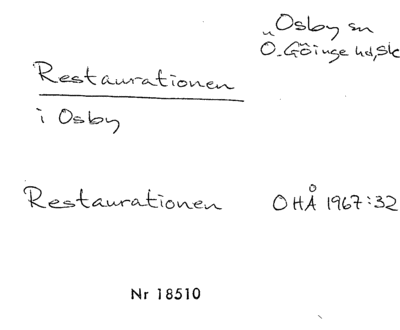 Osby sn
Ö. Göinge hd, Sk
Restaurationen
i Osby
Restaurationen OHÅ 1967:32
Nr 18510